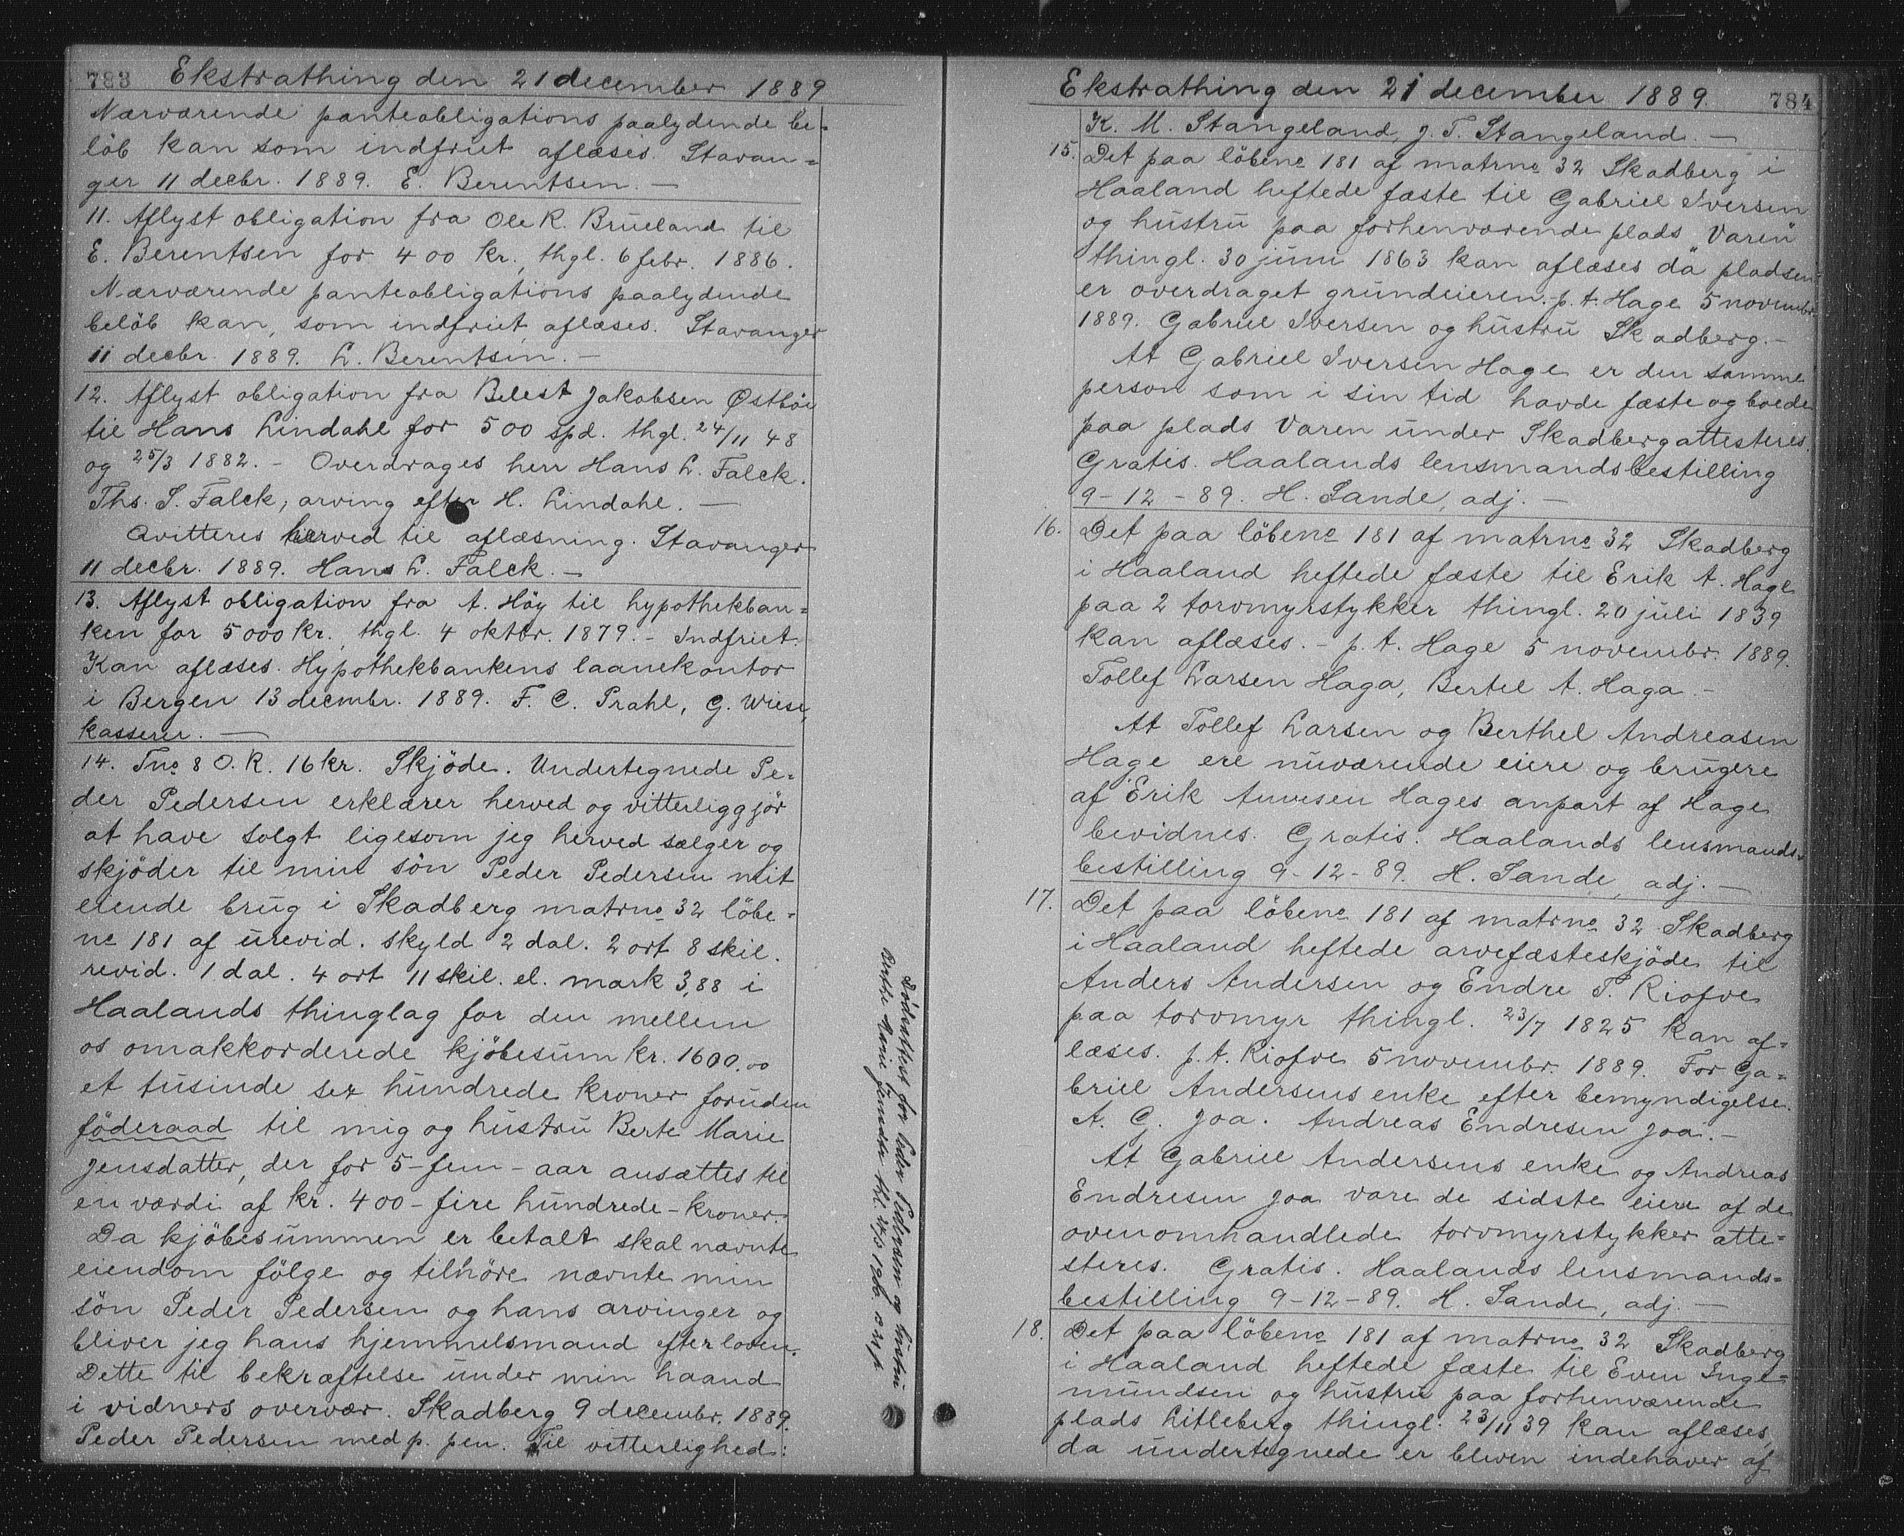 783 Ekstrathing den 21 december 1889
Nærværende panteobligations paalydende be-
löb kan som indfriet aflæses. Stavan=
ger 11 decbr. 1889. E. Berentsen. —
11. Aflyst obligation fra Ole R. Brueland til
E. Berentsen for 400 kr., thgl. 6 febr. 1886.
Nærværende panteobligations paalydende
belöb kan, som indfriet, aflæses. Stavanger
11 decbr. 1889. L. Berentsen. —
12. Aflyst obligation fra Belest Jakobsen Østböe
til Hans Lindahl for 500 spd. thgl. 24/11 48
og 25/3 1882. — Overdrages herr Hans L. Falck.
Ths. S. Falck, arving efter H. Lindahl. —
Qvitteres herved til aflæsning. Stavanger
11 decbr. 1889. Hans L. Falck. —
13. Aflyst obligation fra A. Höy til hypothekban=
ken for 5000 kr., thgl. 4 oktbr. 1879. — Indfriet.
Kan aflæses. Hypothekbankens laanekontor
i Bergen 13 decmbr. 1889. F. C. Prahl, G. Wiese,
kasserer. —
14. Tno 8 O. R. 16 kr. Skjöde. Undertegnede Pe=
der Pedersen erklærer herved og vitterliggjör
at have solgt ligesom jeg herved sælger og
skjöder til min sön Peder Pedersen mit
eiende brug i Skadberg matrno 32 löbe=
no 181 af urevid. skyld 2 dal. 2 ort 8 skil.
revid. 1 dal. 4 ort 11 skil. el. mark 3,88 i
Haalands thinglag for den mellem
os omakkorderede kjöbesum kr. 1600.00
et tusinde sex hundrede kroner foruden
föderaad til mig og hustru Berte Marie
Jensdatter, der for 5 - fem - aar ansættes til
en værdi af kr. 400 - fire hundrede - kroner.
Da kjöbesummen er betalt skal nævnte
eiendom fölge og tilhöre nævnte min
sön Peder Pedersen og hans arvinger og
bliver jeg hans hjemmelsmand efter loven.
Dette til bekræftelse under min haand
i vidners overvær. Skadberg 9 decembr. 1889.
Peder Pedersen med p. pen. Til vitterlighed:
Dødsattest for Peder Pedersen og hustru
Berthe Marie Jensdatter thl.
Ekstrathing den 21 december 1889. 784
K. M. Stangeland, J. T. Stangeland. —
15. Det paa löbeno 181 af matrno 32 Skadberg i
Haaland heftede fæste til Gabriel Iversen
og hustru paa forhenværende plads "Varen"
thingl. 30 juni 1863 kan aflæses da pladsen
er overdraget grundeieren. p. t. Hage 5 novembr.
1889. Gabriel Iversen og hustru Skadberg. —
At Gabriel Iversen Hage er den samme
person som i sin tid havde fæste og boede
paa plads Varen under Skadberg attesteres.
Gratis. Haalands lensmandsbestilling
9-12-89. H. Sande, adj. —
16. Det paa löbeno 181 af matrno 32 Skadberg
i Haaland heftede fæste til Erik A. Hage
paa 2 torvmyrstykker thingl. 20 juli 1839
kan aflæses. — p. t. Hage 5 novembr. 1889.
Tollef Larsen Haga, Bertel A. Haga. —
At Tollef Larsen og Berthel Andreasen
Hage ere nuværende eiere og brugere
af Erik Amesen Hages anpart af Hage
bevidnes. Gratis. Haalands lensmands=
bestilling 9-12-89. H. Sande, adj. —
17. Det paa löbeno 181 af matrno 32 Skadberg
i Haaland heftede arvefæsteskjöde til
Anders Andersen og Endre T. Riofve
paa torvmyr thingl. 23/7 1825 kan af=
læses. p. t. Riofve 5 novembr. 1889. For Ga=
briel Andersens enke efter bemyndigelse.
A. C. Joa. Andreas Endresen Joa. —
At Gabriel Andersens enke og Andreas
Endresen Joa vare de sidste eiere af de
ovenomhandlede torvmyrstykker atte=
steres. Gratis. Haalands lensmands=
bestilling 9-12-89. H. Sande, adj. —
18. Det paa löbeno 181 af matrno 32 Skadberg
i Haaland heftede fæste til Even Inge=
mundsen og hustru paa forhenværende
plads Litleberg thingl. 23/11 39 kan aflæses,
da undertegnede er bleven indehaver af